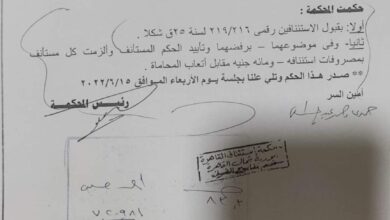 حكمت المحكمة :
أولا: بقبول الاستئنافين رقمى ٢١٩/٢١٦ لسنة ٢٥ق شكلا .
ثانيا- وفى موضوعهما – برفضهما وتأييد الحكم المستأنف وألزمت كل مستأنف
بمصروفات استئنافه - ومائه جنيه مقابل أتعاب المحاماة .
** صدر هذا الحكم وتلي علنا بجلسة يوم الأربعاء الموافق ٢٠٢٢/٦/١٥
أمين السر
رئيس المحكمة
محكمة استئناف القاهرة
مأمورية شمال القاهرة